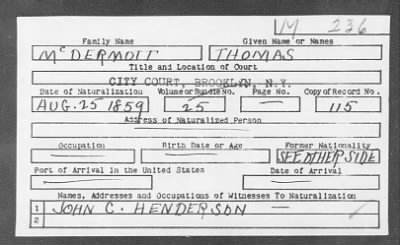 M 236
Family Name Given Name or Names
McDERMOTT THOMAS
Title and Location of Court
CITY COURT, BROOKLYN, N.Y.
Date of Naturalization Volume or Bundle No. Page No. Copy of Record No.
AUG. 25 1859 25 — 115
Address of Naturalized Person
Occupation Birth Date or Age Former Nationality
SEE OTHER SIDE
Port of Arrival in the United States Date of Arrival
Names, Addresses and Occupations of Witnesses To Naturalization
1 JOHN C. HENDERSON —
2